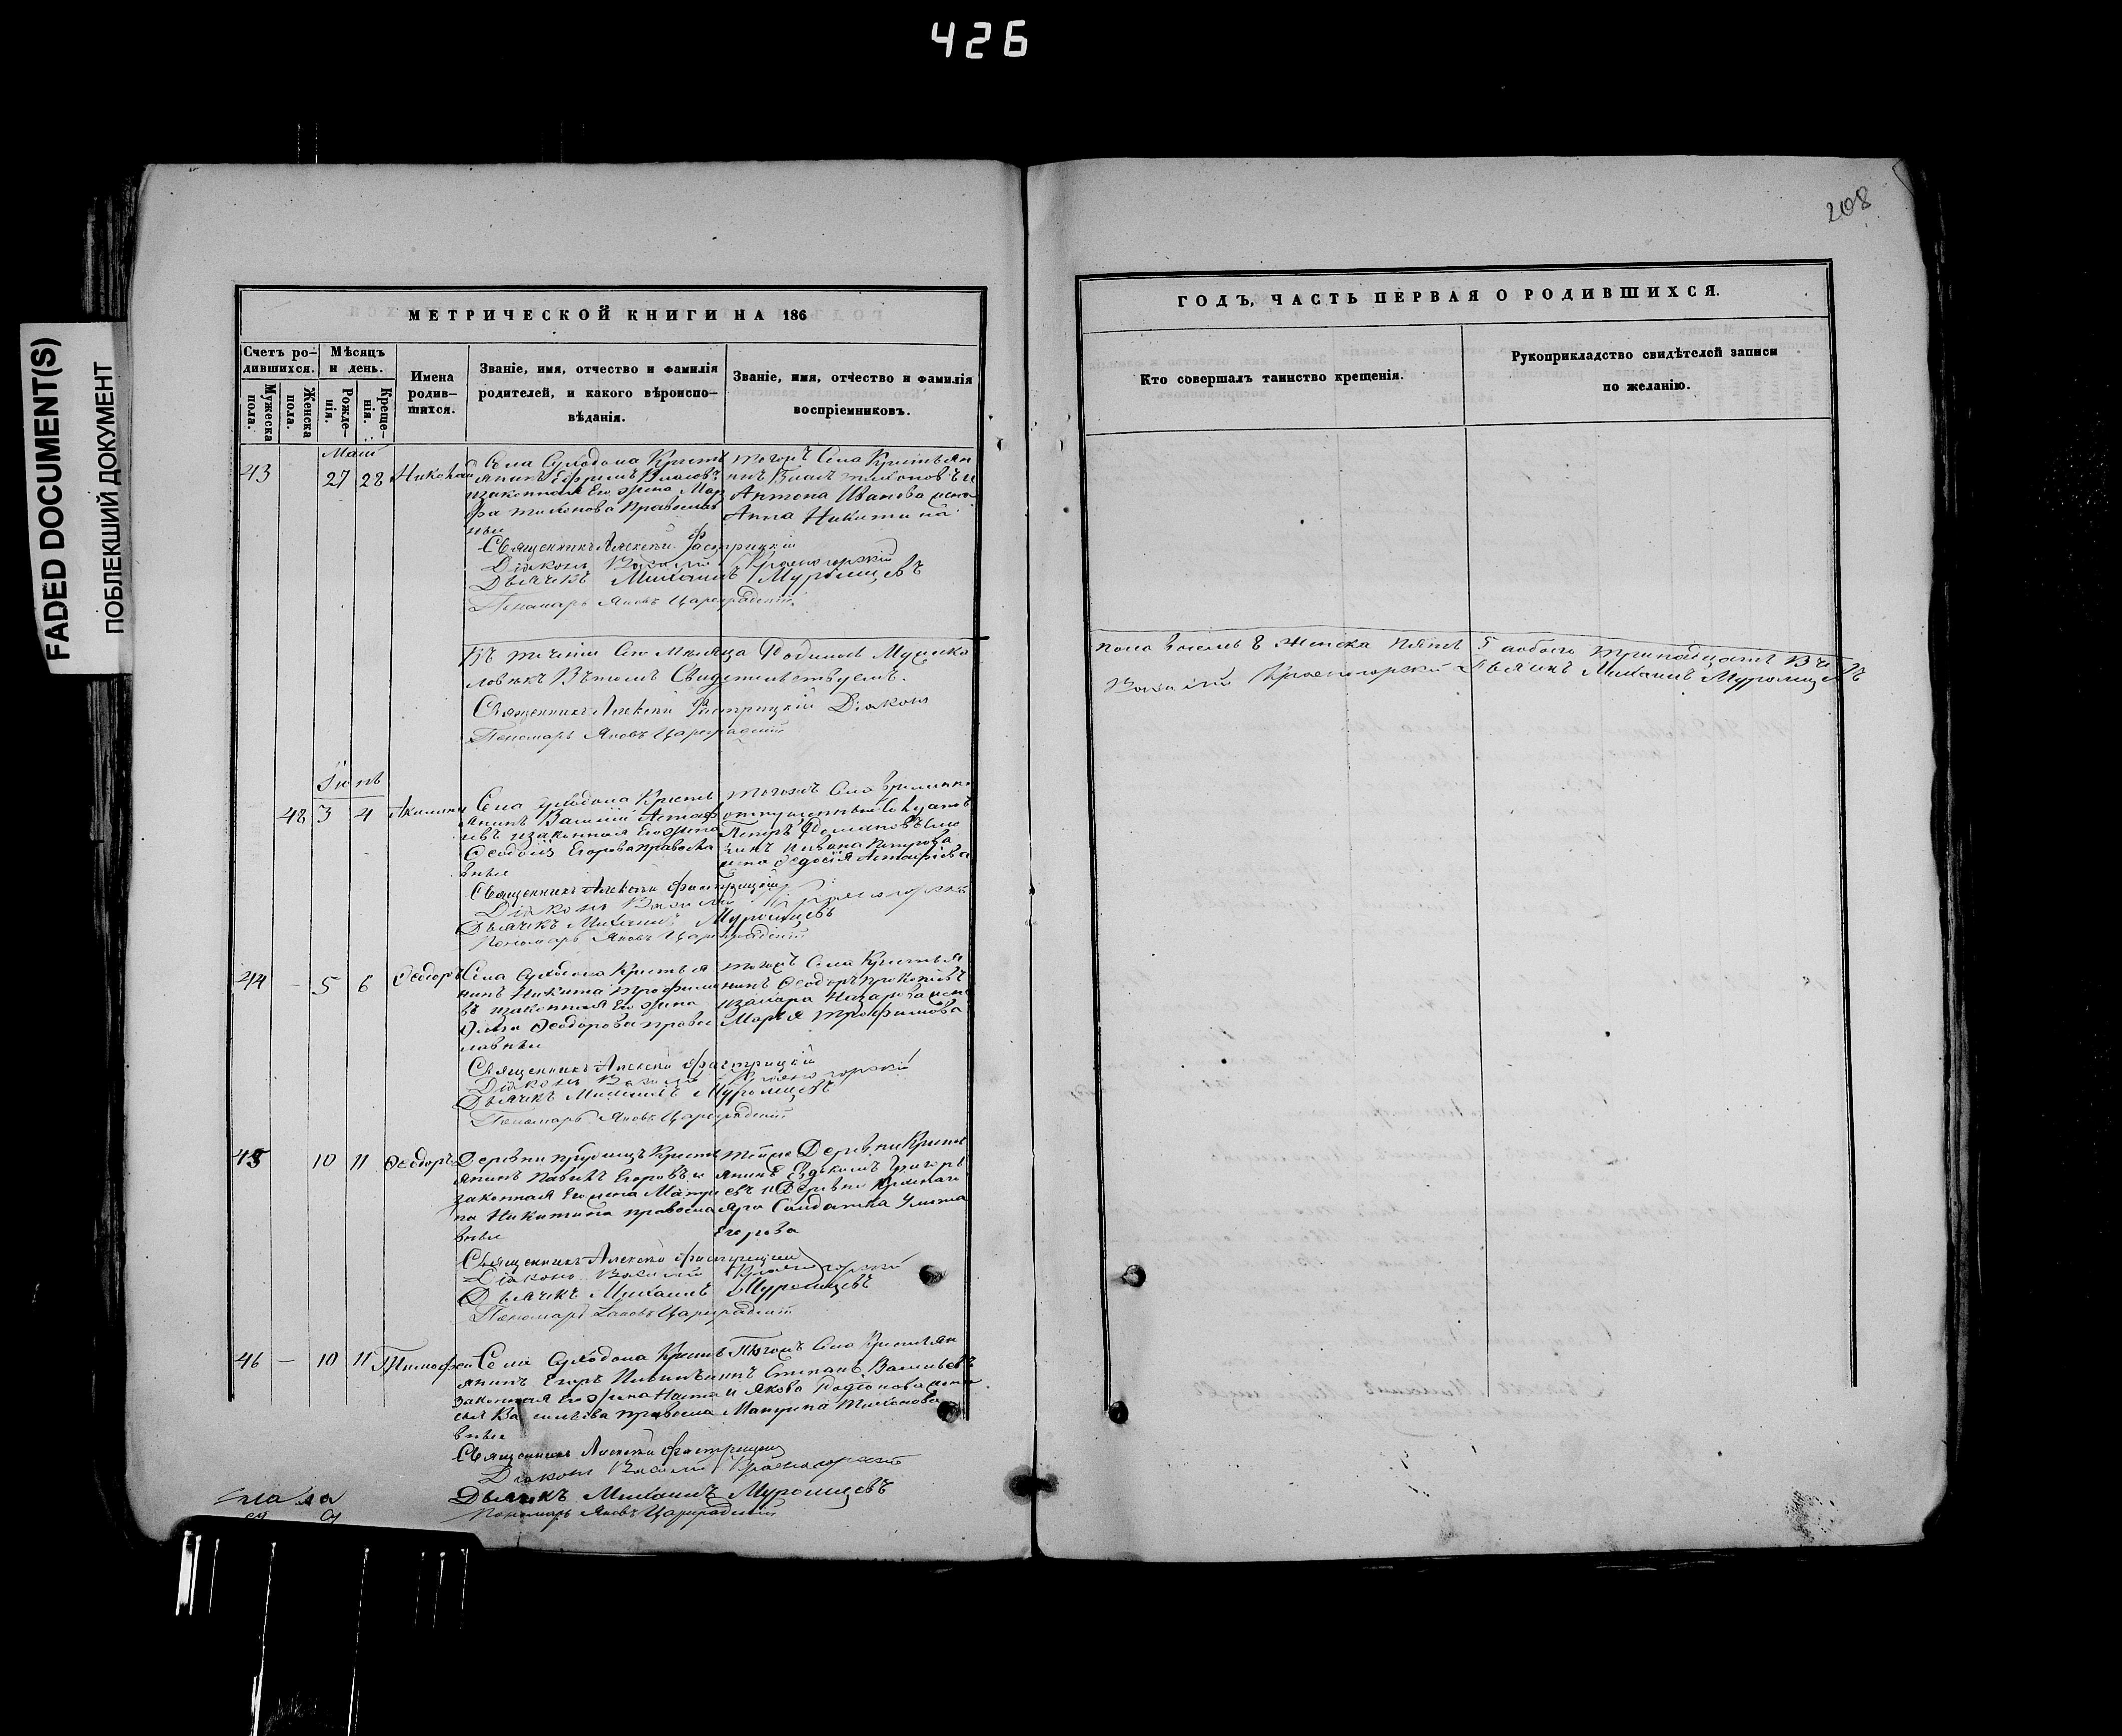 426
FADED DOCUMENT(S)
ПОБЛЕКШИЙ ДОКУМЕНТ
208
МЕТРИЧЕСКОЙ КНИГИ НА 186
ГОДЪ, ЧАСТЬ ПЕРВАЯ О РОДИВШИХСЯ.
Счетъ ро-
дившихся.
Мужеска
пола.
Женска
пола.
Мѣсяцъ
и день.
Рожде-
нія.
Креще-
нія.
Имена
родив-
шихся.
Званіе, имя, отчество и фамилія
родителей, и какого вѣроиспо-
вѣданія.
Званіе, имя, отчество и фамилія
воспріемниковъ.
Кто совершалъ таинство крещенія.
Рукоприкладство свидѣтелей записи
по желанію.
Маій
43 27 28 Николай
Села Суходола Кресть
янинъ Ефремъ Власовъ
изаконная Его жена Мар
фа Тихонова Православ
ные
тогожъ Села Крестьян
инъ Власъ Тихоновъ и
Антона Иванова жена
Анна Никитина
Священникъ Алексѣй
Діаконъ Василій Красногорскій
Дьячекъ Михаилъ Муромцевъ
Пономарь Яковъ Цареградскій
Въ теченіи Сего Мѣсяца Родилось Мужеска
пола восемь Женска Пять 5 а обоего тринадцать
ловѣкъ Вътомъ Свидѣтельствуемъ.
Священникъ Алексѣй Діаконъ
Василій Красногорскій Дьячекъ Михаилъ Муромцевъ
Пономарь Яковъ Цареградскій
Іюнь
48 3 4 Акилина
Села Суходола Кресть
янинъ Василій Астаф
іевъ изаконная Его жена
Ѳеодосія Егорова православ
ные
тогожъ Села
Петръ
Ивана Петрова
жена Федосія Астафіева
Священникъ Алексѣй
Діаконъ Василій Красногорскій
Дьячекъ Михаилъ Муромцевъ
Пономарь Яковъ Цареградскій
44 - 5 6 Ѳеодоръ
Села Суходола Крестья
нинъ Никита Трофимо
въ изаконная Его жена
Ѳеодорова право
славные
тогожъ Села Крестья
нинъ Ѳеодоръ Прокопіевъ
Назарова жена
Марья Трофимова
Священникъ Алексѣй
Діаконъ Василій Красногорскій
Дьячекъ Михаилъ Муромцевъ
Пономарь Яковъ Цареградскій
45 10 11 Ѳеодоръ
Деревни Прудищъ Кресть
янинъ Павелъ Егоровъ и
законная Его жена Матре
на Никитина православ
ные
тойже Деревни Кресть
янинъ Григорь
евъ и Деревни Краснаго
яра Солдатка Улита
Егорова
Священникъ Алексѣй
Діаконъ Василій Красногорскій
Дьячекъ Михаилъ Муромцевъ
Пономарь Яковъ Цареградскій
46 - 10 11 Тимофей
Села Суходола Кресть
янинъ Егоръ Ильинъ и
законная Его жена Наста
сья Васильева православ
ные
Тогожъ Села Крестьян
инъ Степанъ Васильевъ
и Якова Родіонова жена
Матрена Тихонова
Священникъ Алексѣй
Діаконъ Василій Красногорскій
Дьячекъ Михаилъ Муромцевъ
Пономарь Яковъ Цареградскій